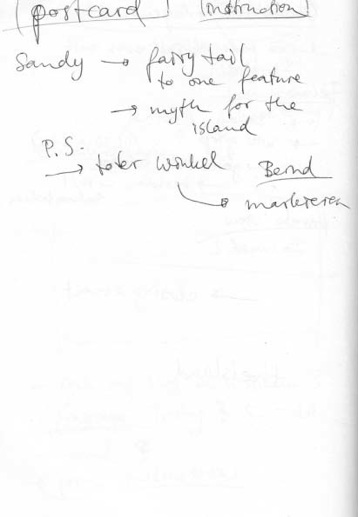 [postcard] [instruction]
Sandy → fairy tail
to one feature
→ myth for the
island
P.S.
→ toter Winkel Bernd
↳ markieren